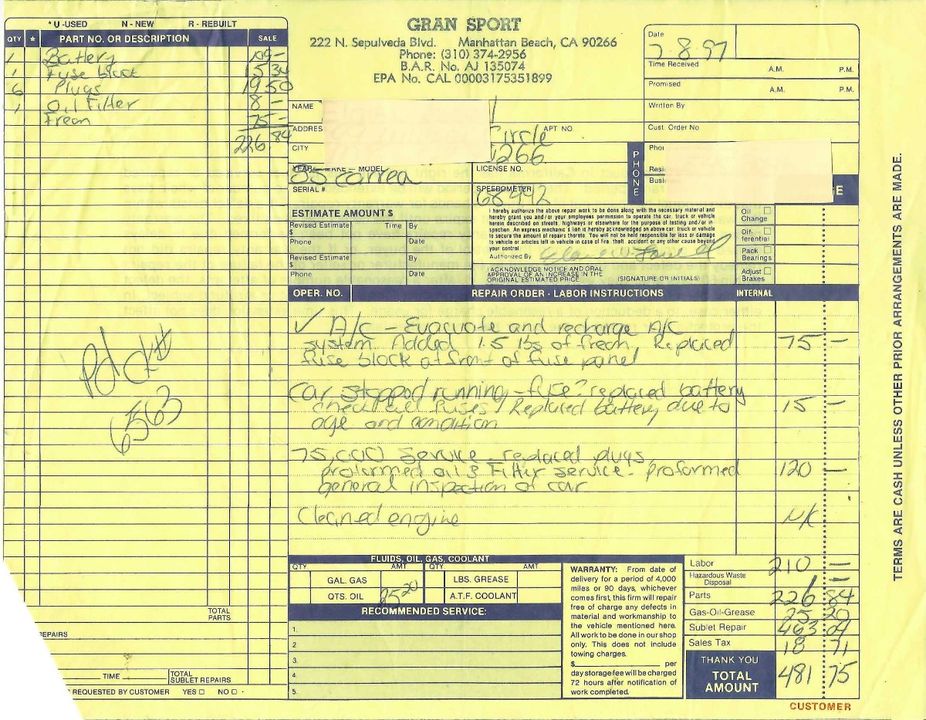 * U -USED N - NEW R - REBUILT
QTY * PART NO. OR DESCRIPTION SALE
1 Battery 109 -
1 Fuse block 15 34
6 Plugs 19 50
1 Oil Filter 8 -
Freon 75 -
226 84
Pd ck#
6563
TOTAL PARTS
EPAIRS
TIME
TOTAL SUBLET REPAIRS
REQUESTED BY CUSTOMER YES □ NO □
GRAN SPORT
222 N. Sepulveda Blvd. Manhattan Beach, CA 90266
Phone: (310) 374-2956
B.A.R. No. AJ 135074
EPA No. CAL 00003175351899
Date
7 8 97
Time Received A.M. P.M.
Promised A.M. P.M.
Written By
Cust. Order No
NAME
ADDRES
Circle APT NO.
CITY
266
PHONE
Phor
Resi
Busi
YEAR - MAKE - MODEL
LICENSE NO.
SERIAL #
SPEEDOMETER
68442
E
ESTIMATE AMOUNT $
Revised Estimate Time By
$
Phone Date
Revised Estimate By
$
Phone Date
I hereby authorize the above repair work to be done along with the necessary material and
hereby grant you and/or your employees permission to operate the car, truck or vehicle
herein described on streets, highways or elsewhere for the purpose of testing and/or in-
spection. An express mechanic's lien is hereby acknowledged on above car, truck or vehicle
to secure the amount of repairs thereto. You will not be held responsible for loss or damage
to vehicle or articles left in vehicle in case of fire, theft, accident or any other cause beyond
your control.
Authorized By
I ACKNOWLEDGE NOTICE AND ORAL
APPROVAL OF AN INCREASE IN THE
ORIGINAL ESTIMATED PRICE (SIGNATURE OR INITIALS)
Oil Change □
Dif- ferential □
Pack Bearings □
Adjust Brakes □
OPER. NO. REPAIR ORDER - LABOR INSTRUCTIONS INTERNAL
✓ A/c - Evacuate and recharge A/c
system. Added 1.5 lbs of freon, Replaced 75 -
fuse block at front of fuse panel
Car stopped running - fuse? replaced battery
check all fuses / Replaced battery due to 15 -
age and condition
75,000 Service - replaced plugs,
proformed oil & Filter service. proformed 120 -
general inspection of car
Cleaned engine N/C
FLUIDS, OIL, GAS, COOLANT
QTY AMT QTY AMT
GAL. GAS LBS. GREASE
QTS. OIL 25 20 A.T.F. COOLANT
RECOMMENDED SERVICE:
1.
2.
3.
4.
5.
WARRANTY: From date of
delivery for a period of 4,000
miles or 90 days, whichever
comes first, this firm will repair
free of charge any defects in
material and workmanship to
the vehicle mentioned here.
All work to be done in our shop
only. This does not include
towing charges.
$ per
day storage fee will be charged
72 hours after notification of
work completed.
Labor 210 -
Hazardous Waste Disposal 1 -
Parts 226 84
Gas-Oil-Grease 25 20
Sublet Repair 463 04
Sales Tax 18 71
THANK YOU
TOTAL AMOUNT 481 75
CUSTOMER
TERMS ARE CASH UNLESS OTHER PRIOR ARRANGEMENTS ARE MADE.